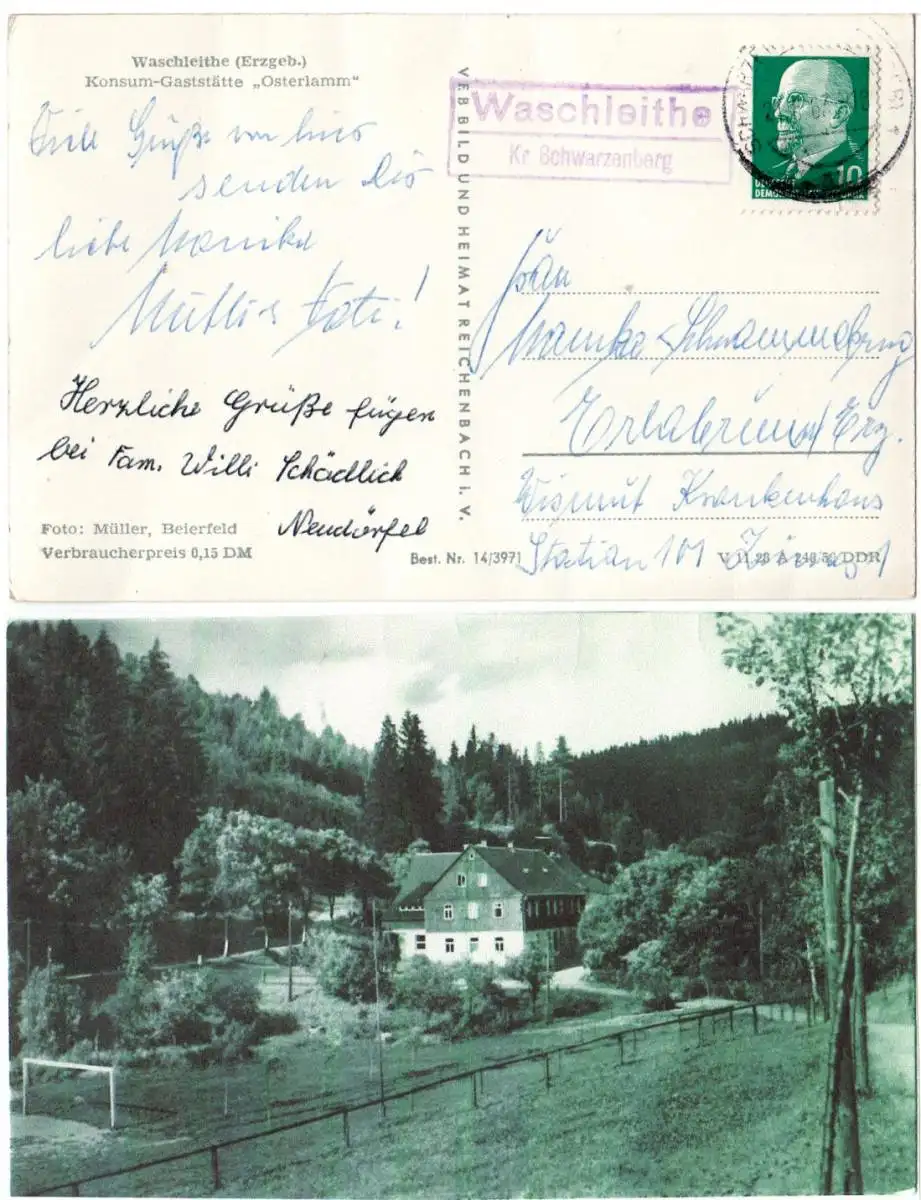 Waschleithe (Erzgeb.)
Konsum-Gaststätte „Osterlamm“
Viele Grüße von hier
senden Dir
liebe Monika
Mutti u. Vati!
Herzliche Grüße fügen
bei Fam. Willi Schädlich
Neudörfel
Foto: Müller, Beierfeld
Verbraucherpreis 0,15 DM
VEB BILD UND HEIMAT REICHENBACH i. V.
Best. Nr. 14/3971
Waschleithe
Kr Schwarzenberg
10
DEUTSCHE
DEMOKRATISCHE REPUBLIK
Frän
Monika
Erlabrunn/Erz.
Wismut Krankenhaus
Station 101 Zimmer 1
V 11 28 A 240/56 DDR